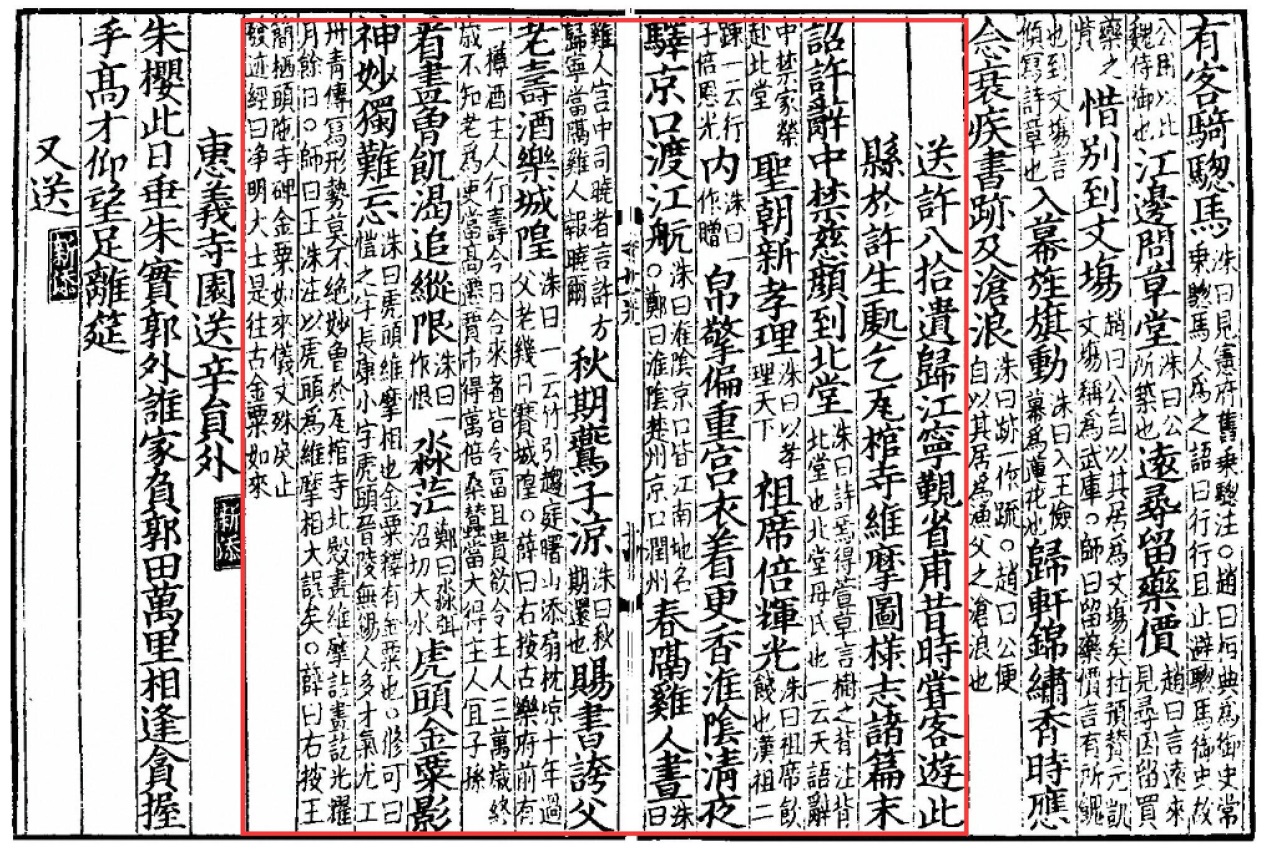 有客騎驄馬洙曰見憲府舊乘驄注。趙曰桓典爲御史常乘驄馬人爲之語曰行行且止避驄馬御史故
公用以比魏侍御也江邊問草堂洙曰公所築也遠尋留藥價趙曰言遠來見尋因留買
藥之貲惜別到文塲趙曰公自以其居爲文塲矣杜預贊元凱文塲稱爲武庫。師曰留藥價言有所餽
也到文塲言傾寫詩章也入幕旌旗動洙曰入王儉幕爲蓮花池歸軒錦繡香時應
念衰疾書跡及滄浪洙曰跡一作踈。趙曰公便自以其居爲漁父之滄浪也
送許八拾遺歸江寧覲省甫昔時嘗客遊此
縣於許生處乞瓦棺寺維摩圖樣志諸篇末
詔許辭中禁慈顔到北堂洙曰詩焉得萱草言樹之背注背北堂也北堂母氏也一云天語辭
中禁家榮赴北堂聖朝新孝理洙曰以孝理天下祖席倍輝光洙曰祖席飲餞也漢祖二
踈一云行子倍恩光内洙曰一作贈帛擎偏重宮衣着更香淮陰清夜
驛京口渡江航洙曰淮陰京口皆江南地名。鄭曰淮陰楚州京口潤州春隔雞人晝洙曰
雞人官中司曉者言許歸寧當隔雞人報曉爾方秋期鷰子凉洙曰秋期還也賜書誇父
老壽酒樂城隍洙曰一云竹引趨庭曙山添扇枕凉十年過父老幾日賽城隍。薛曰右按古樂府前有
一樽酒主人行壽今日合來者皆令富且貴欲令主人三萬歲終歲不知老爲更當髙遷賈市得萬倍桑蠶當大得主人宜子孫
看畫曾飢渴追縱限洙曰一作恨淼茫鄭曰淼弭沼切大水虎頭金粟影
神妙獨難忘洙曰虎頭維摩相也金粟釋有金粟也。修可曰愷之字長康小字虎頭晉陵無錫人多才氣尤工
丹青傳寫形勢莫不絶妙曾於瓦棺寺北殿畫維摩詰畫訖光耀月餘日。師曰王洙注以虎頭爲維摩相大誤矣。薛曰右按王
簡栖頭陁寺碑金粟如來儀文殊戾止發迹經曰净明大士是往古金粟如來
惠義寺園送辛員外 新添
朱櫻此日垂朱實郭外誰家負郭田萬里相逢貪握
手髙才仰望足離筵
又送 新添